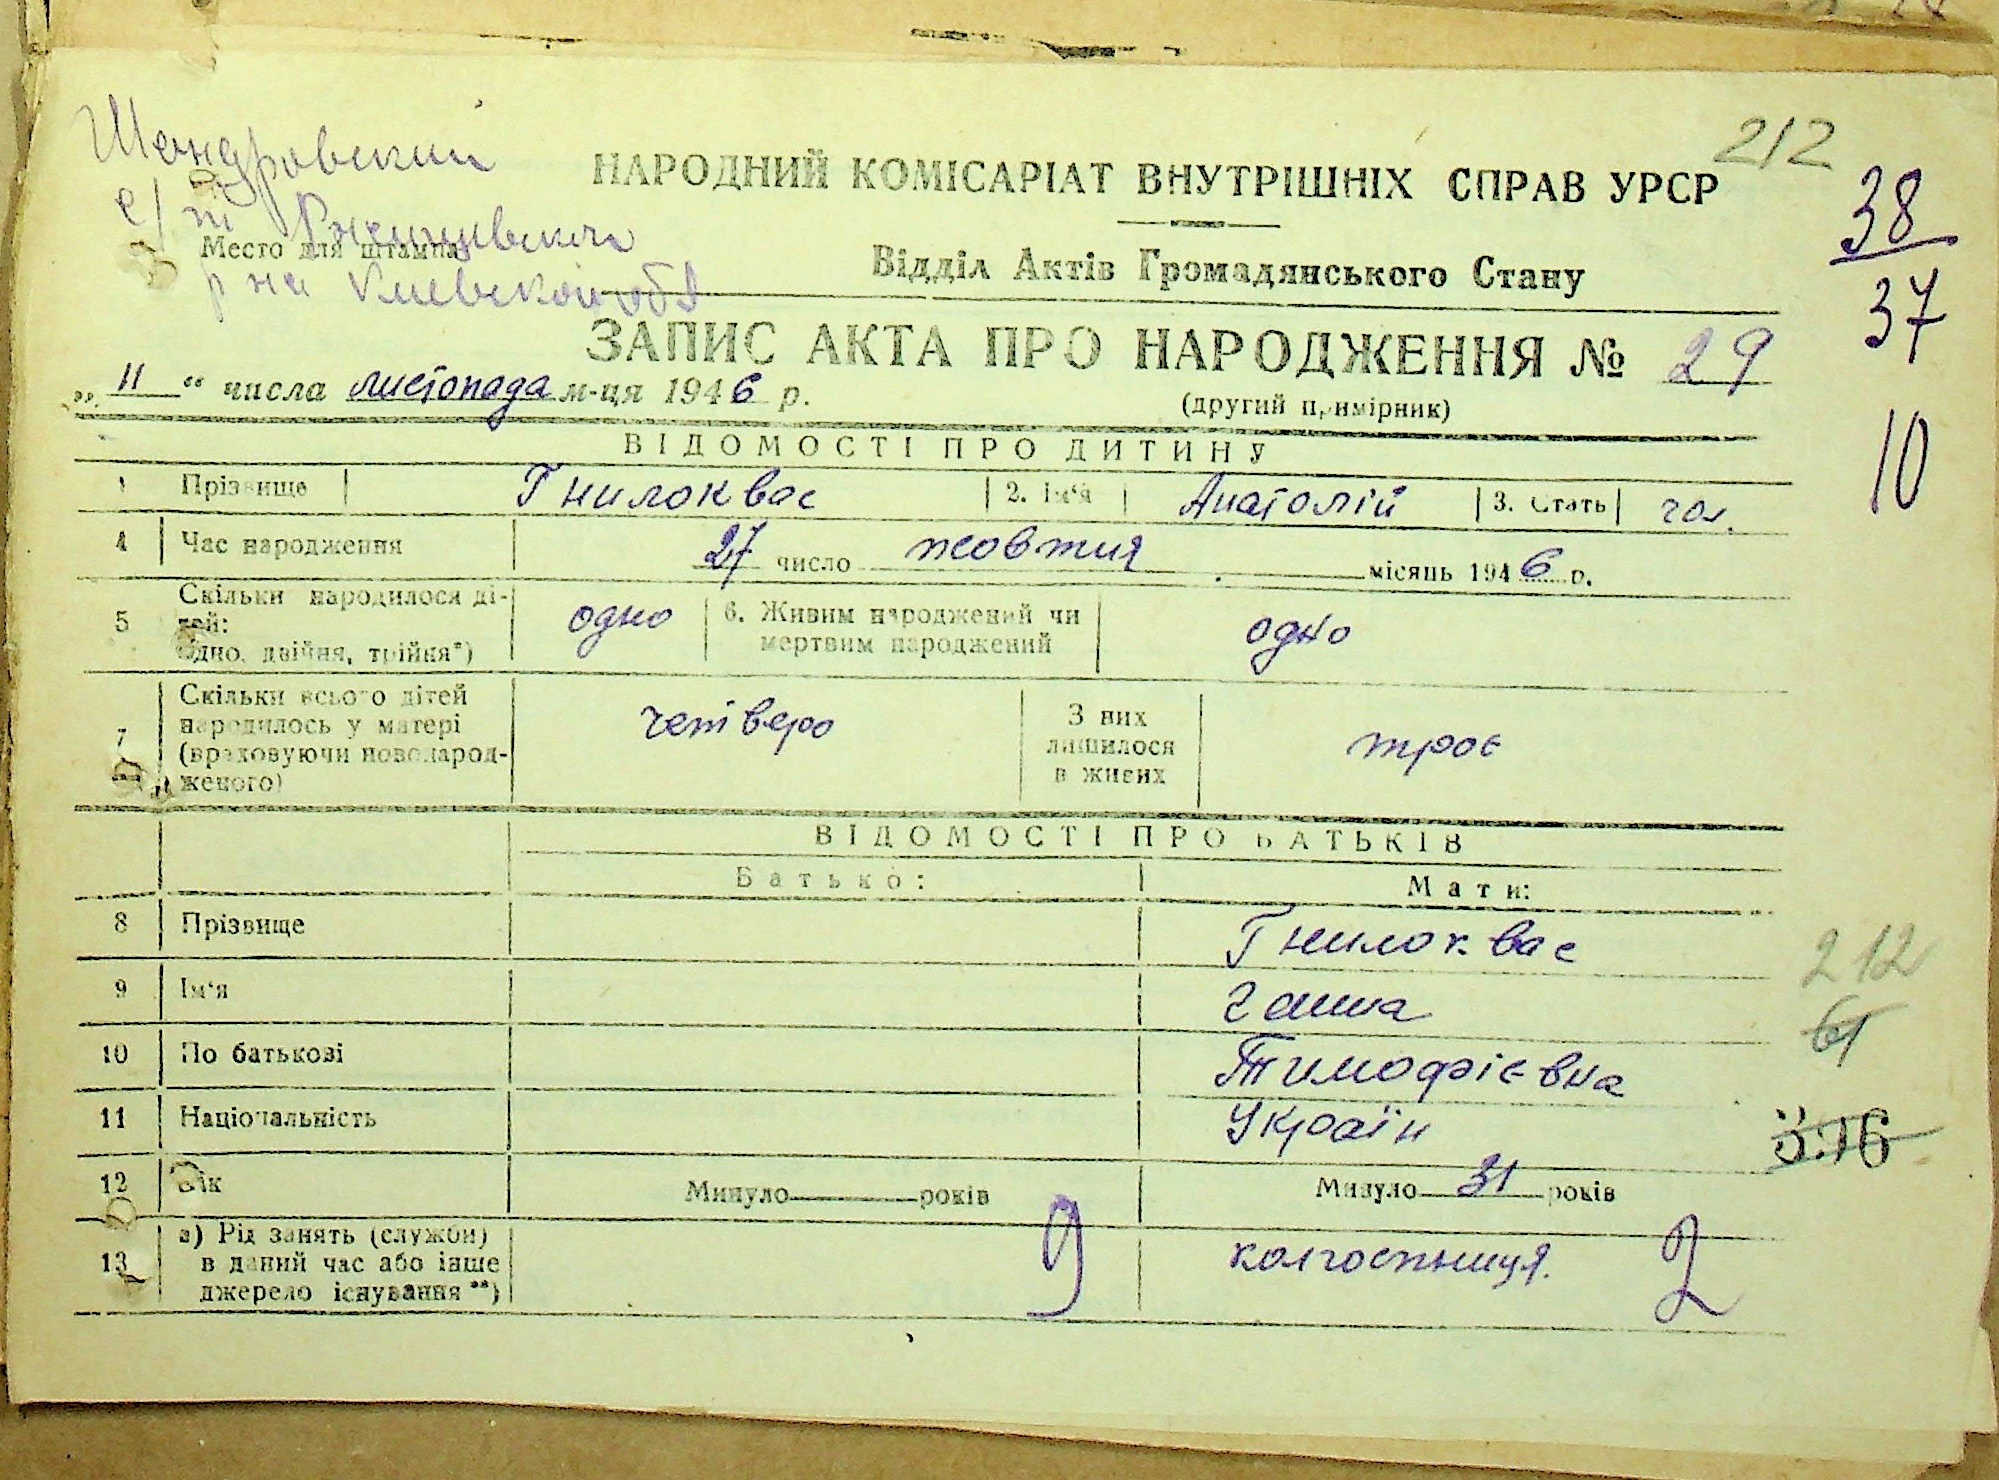 212
Шандровский
с/т Ржищевского
р на Киевской обл
Место для штампа
НАРОДНИЙ КОМІСАРІАТ ВНУТРІШНІХ СПРАВ УРСР
38
37
10
Відділ Актів Громадянського Стану
ЗАПИС АКТА ПРО НАРОДЖЕННЯ № 29
„ 11 “ числа листопада м-ця 1946 р.
(другий примірник)
ВІДОМОСТІ ПРО ДИТИНУ
1 Прізвище Гнилоквас 2. Ім‘я Анатолій 3. Стать чол.
4 Час народження 27 число жовтня місяць 1946 р.
5 Скільки народилося ді-
тей:
одно, двійня, трійня*) одно 6. Живим народжений чи
мертвим народжений одно
7 Скільки всього дітей
народилось у матері
(враховуючи новонарод-
женого) четверо З них
лишилося
в живих троє
ВІДОМОСТІ ПРО БАТЬКІВ
Батько: Мати:
8 Прізвище Гнилоквас
9 Ім‘я Ганна
10 По батькові Тимофієвна
11 Національність Україн
12 Вік Минуло років Минуло 31 років
13 а) Рід занять (служби)
в даний час або інше
джерело існування **) 9 колгоспниця. 2
212
61